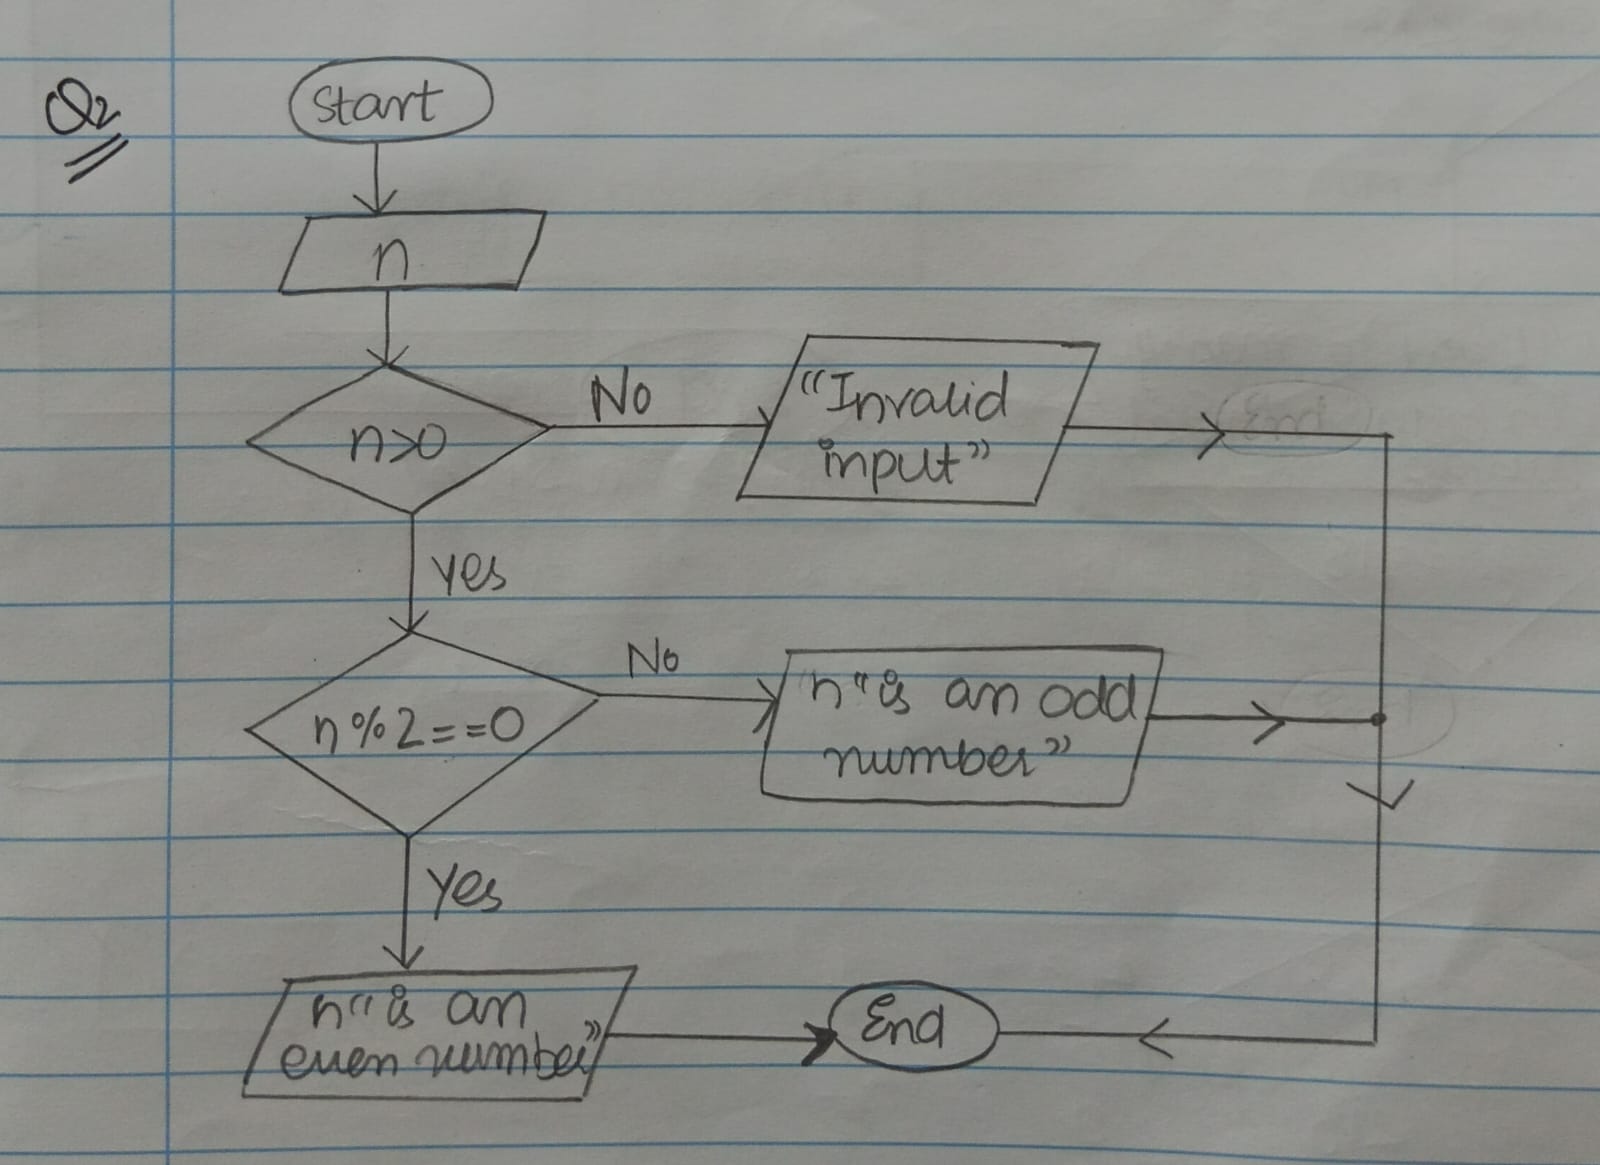 Q2
Start
n
n>0
No
"Invalid
input"
yes
n%2==0
No
n "is an odd
number"
Yes
n "is an
even number"
End